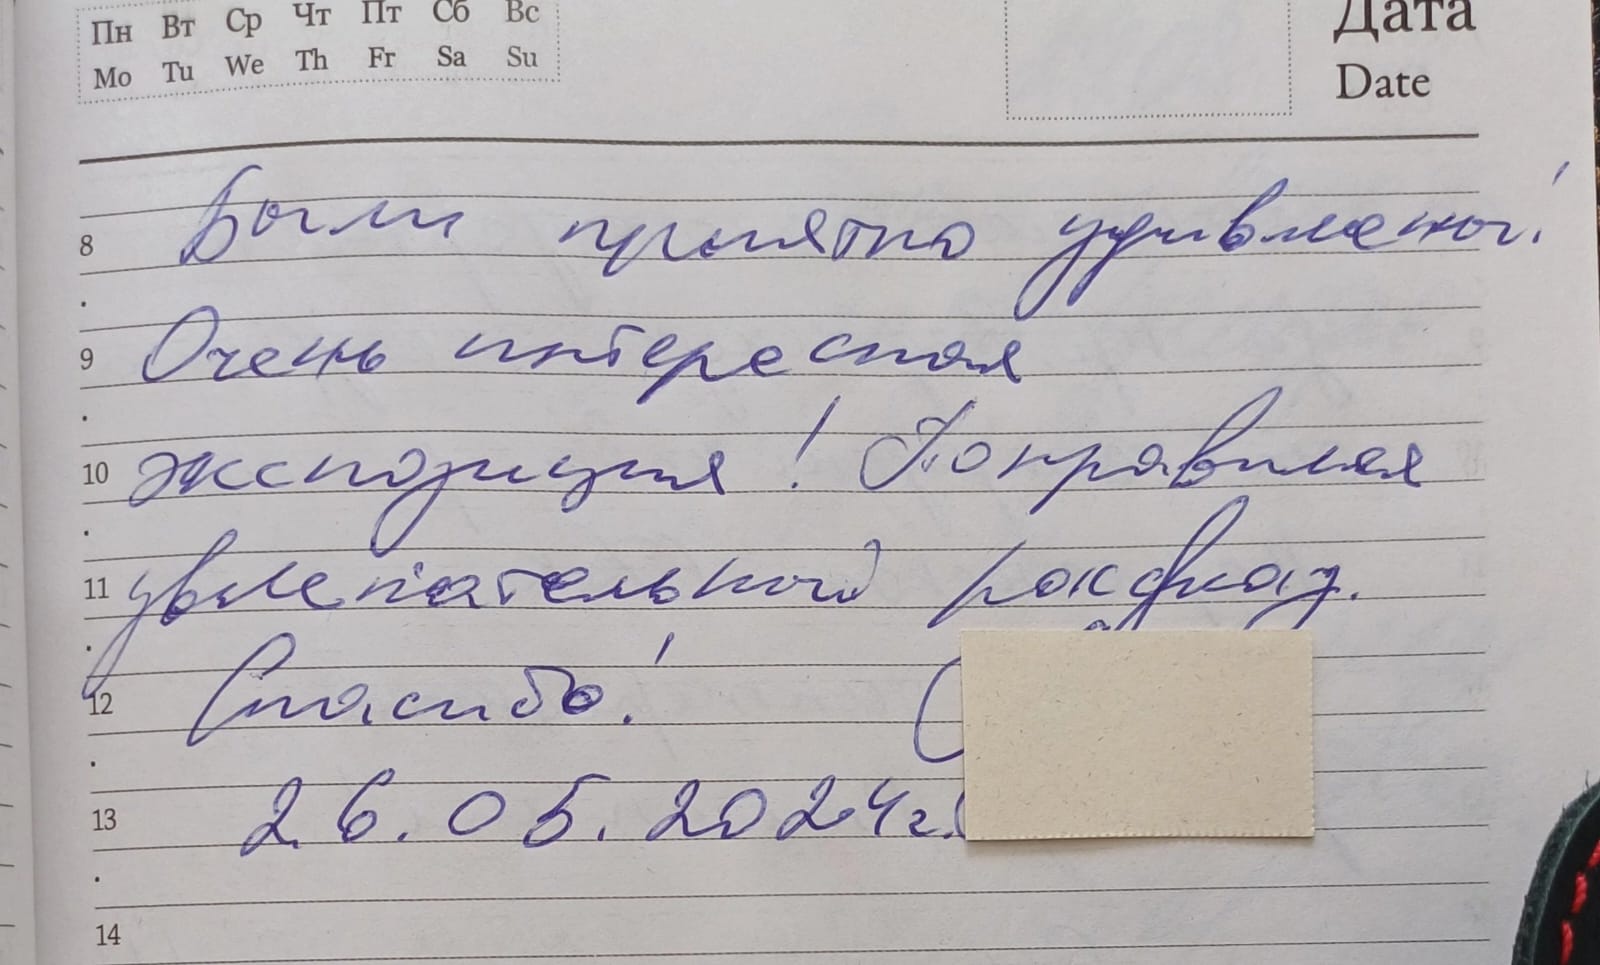 Пн Вт Ср Чт Пт Сб Вс
Mo Tu We Th Fr Sa Su
Дата
Date
8 Были приятно удивлены!
9 Очень интересная
10 экспозиция! Понравился
11 увлекательный рассказ.
12 Спасибо!
13 26.05.2024г.
14